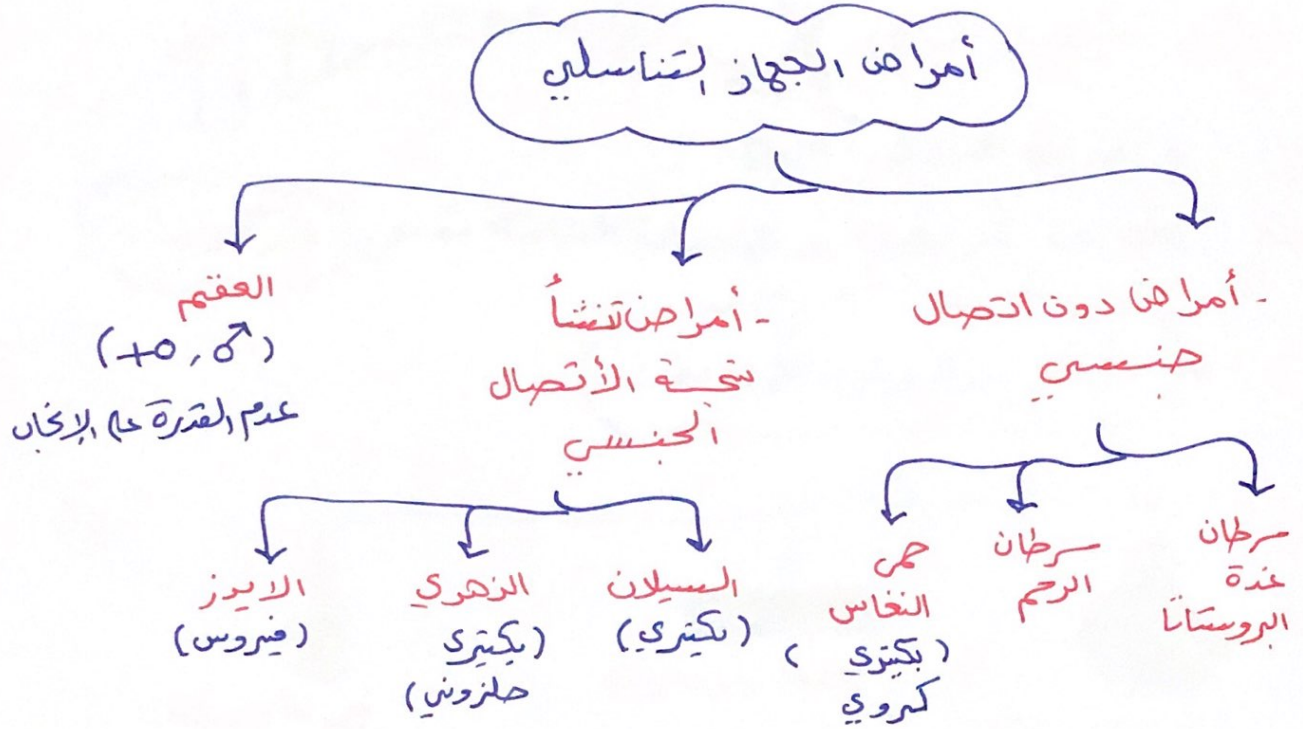 أمراض الجهاز التناسلي
- أمراض دون اتصال
جنسي
سرطان
غدة
البروستاتا
سرطان
الرحم
حمى
النفاس
(بكتيري
كروي)
- أمراض تنشأ
نتيجة الأتصال
الجنسي
السيلان
(بكتيري)
الزهري
(بكتيري
حلزوني)
الايدز
(فيروس)
العقم
(♂, ♀)
عدم القدرة على الإنجاب